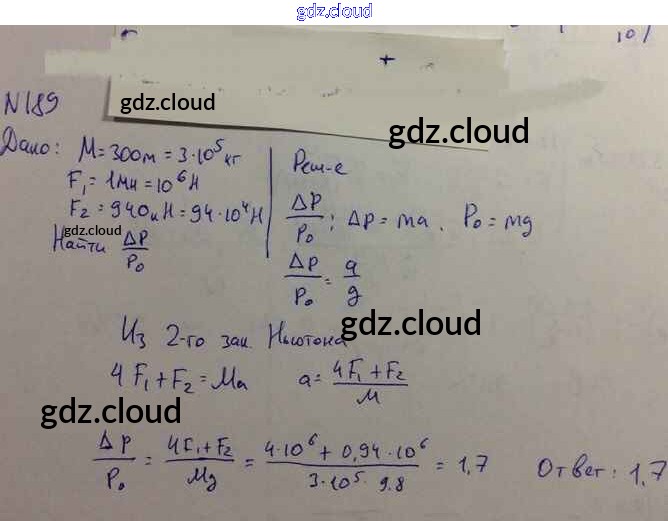 gdz.cloud
10/
+
N189
gdz.cloud
gdz.cloud
Дано: M=300т=3·10⁵кг
F₁=1мн=10⁶Н
F₂=940кН=94·10⁴Н
gdz.cloud
Найти ΔP/P₀
Реш-е
ΔP/P₀; ΔP=ma. P₀=mg
ΔP/P₀=a/g
gdz.cloud
Из 2-го зак Ньютона
4F₁+F₂=Ma a=4F₁+F₂/M
gdz.cloud
ΔP/P₀=4F₁+F₂/Mg=4·10⁶+0,94·10⁶/3·10⁵·9.8=1,7 Ответ: 1,7